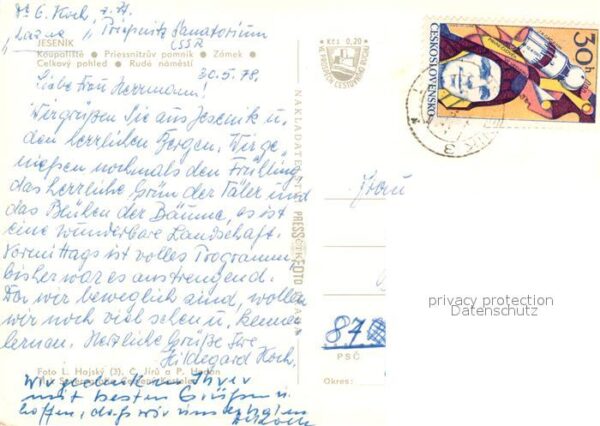 Dr. G. Koch, z. Zt.
"Lázně" Priessnitz Sanatorium
ČSSR
JESENÍK
Koupaliště • Priessnitzův pomník • Zámek •
Celkový pohled • Rudé náměstí
30.5.78.
Liebe Frau Herrmann!
Wir grüßen Sie aus Jesenik u.
den herrlichen Bergen. Wir ge-
nießen nochmals den Frühling
das herrliche Grün der Täler und
das Blühen der Bäume, es ist
eine wunderbare Landschaft.
Vormittags ist volles Programm,
bisher war es anstrengend.
Da wir beweglich sind, wollen
wir noch viel sehen u. kennen
lernen. Herzliche Grüße Ihre
Hildegard Koch.
Foto L. Hajský (3), C. Jírů a P.
Wir gedenken Ihrer
mit besten Grüßen u.
hoffen, daß wir uns
Kčs 0,20
NAKLADATELSTVÍ PRESSFOTO PRAHA
ČESKOSLOVENSKO
30h
Frau
privacy protection
Datenschutz
87
PSČ
Okres: